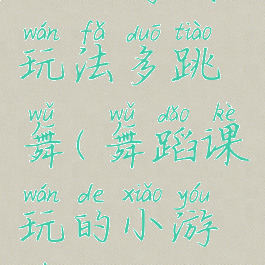 wán fǎ duō tiào
玩法多跳
wǔ wǔ dǎo kè
舞(舞蹈课
wán de xiǎo yóu
玩的小游